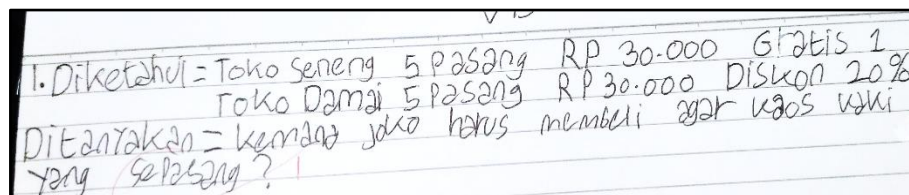 1. Diketahui = Toko seneng 5 Pasang RP 30.000 Gratis 1
Toko Damai 5 Pasang RP 30.000 Diskon 20%
Ditanyakan = kemana joko harus membeli agar kaos kaki
yang sepasang?